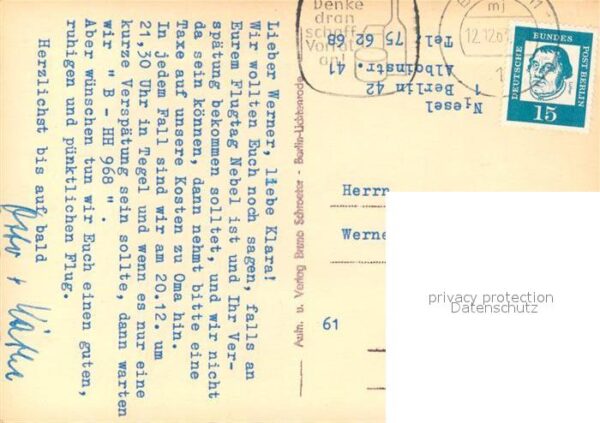 Lieber Werner, liebe Klara!
Wir wollten Euch noch sagen, falls an
Eurem Flugtag Nebel ist und Ihr Ver-
spätung bekommen solltet, und wir nicht
da sein können, dann nehmt bitte eine
Taxe auf unsere Kosten zu Oma hin.
In jedem Fall sind wir am 20.12. um
21,30 Uhr in Tegel und wenn es nur eine
kurze Verspätung sein sollte, dann warten
wir " B - HH 968 " .
Aber wünschen tun wir Euch einen guten,
ruhigen und pünktlichen Flug.
Herzlichst bis auf bald
Aufn. u. Verlag Bruno Schroeter - Berlin-Lichtenrade
Denke
dran
schaff
Vorrat
an!
Niesel
1 Berlin 42
Alboinstr. 41
Tel. 75 62 68
mj
12.12.63
1
DEUTSCHE BUNDES POST BERLIN
15
Herrn
Werne
61
privacy protection
Datenschutz